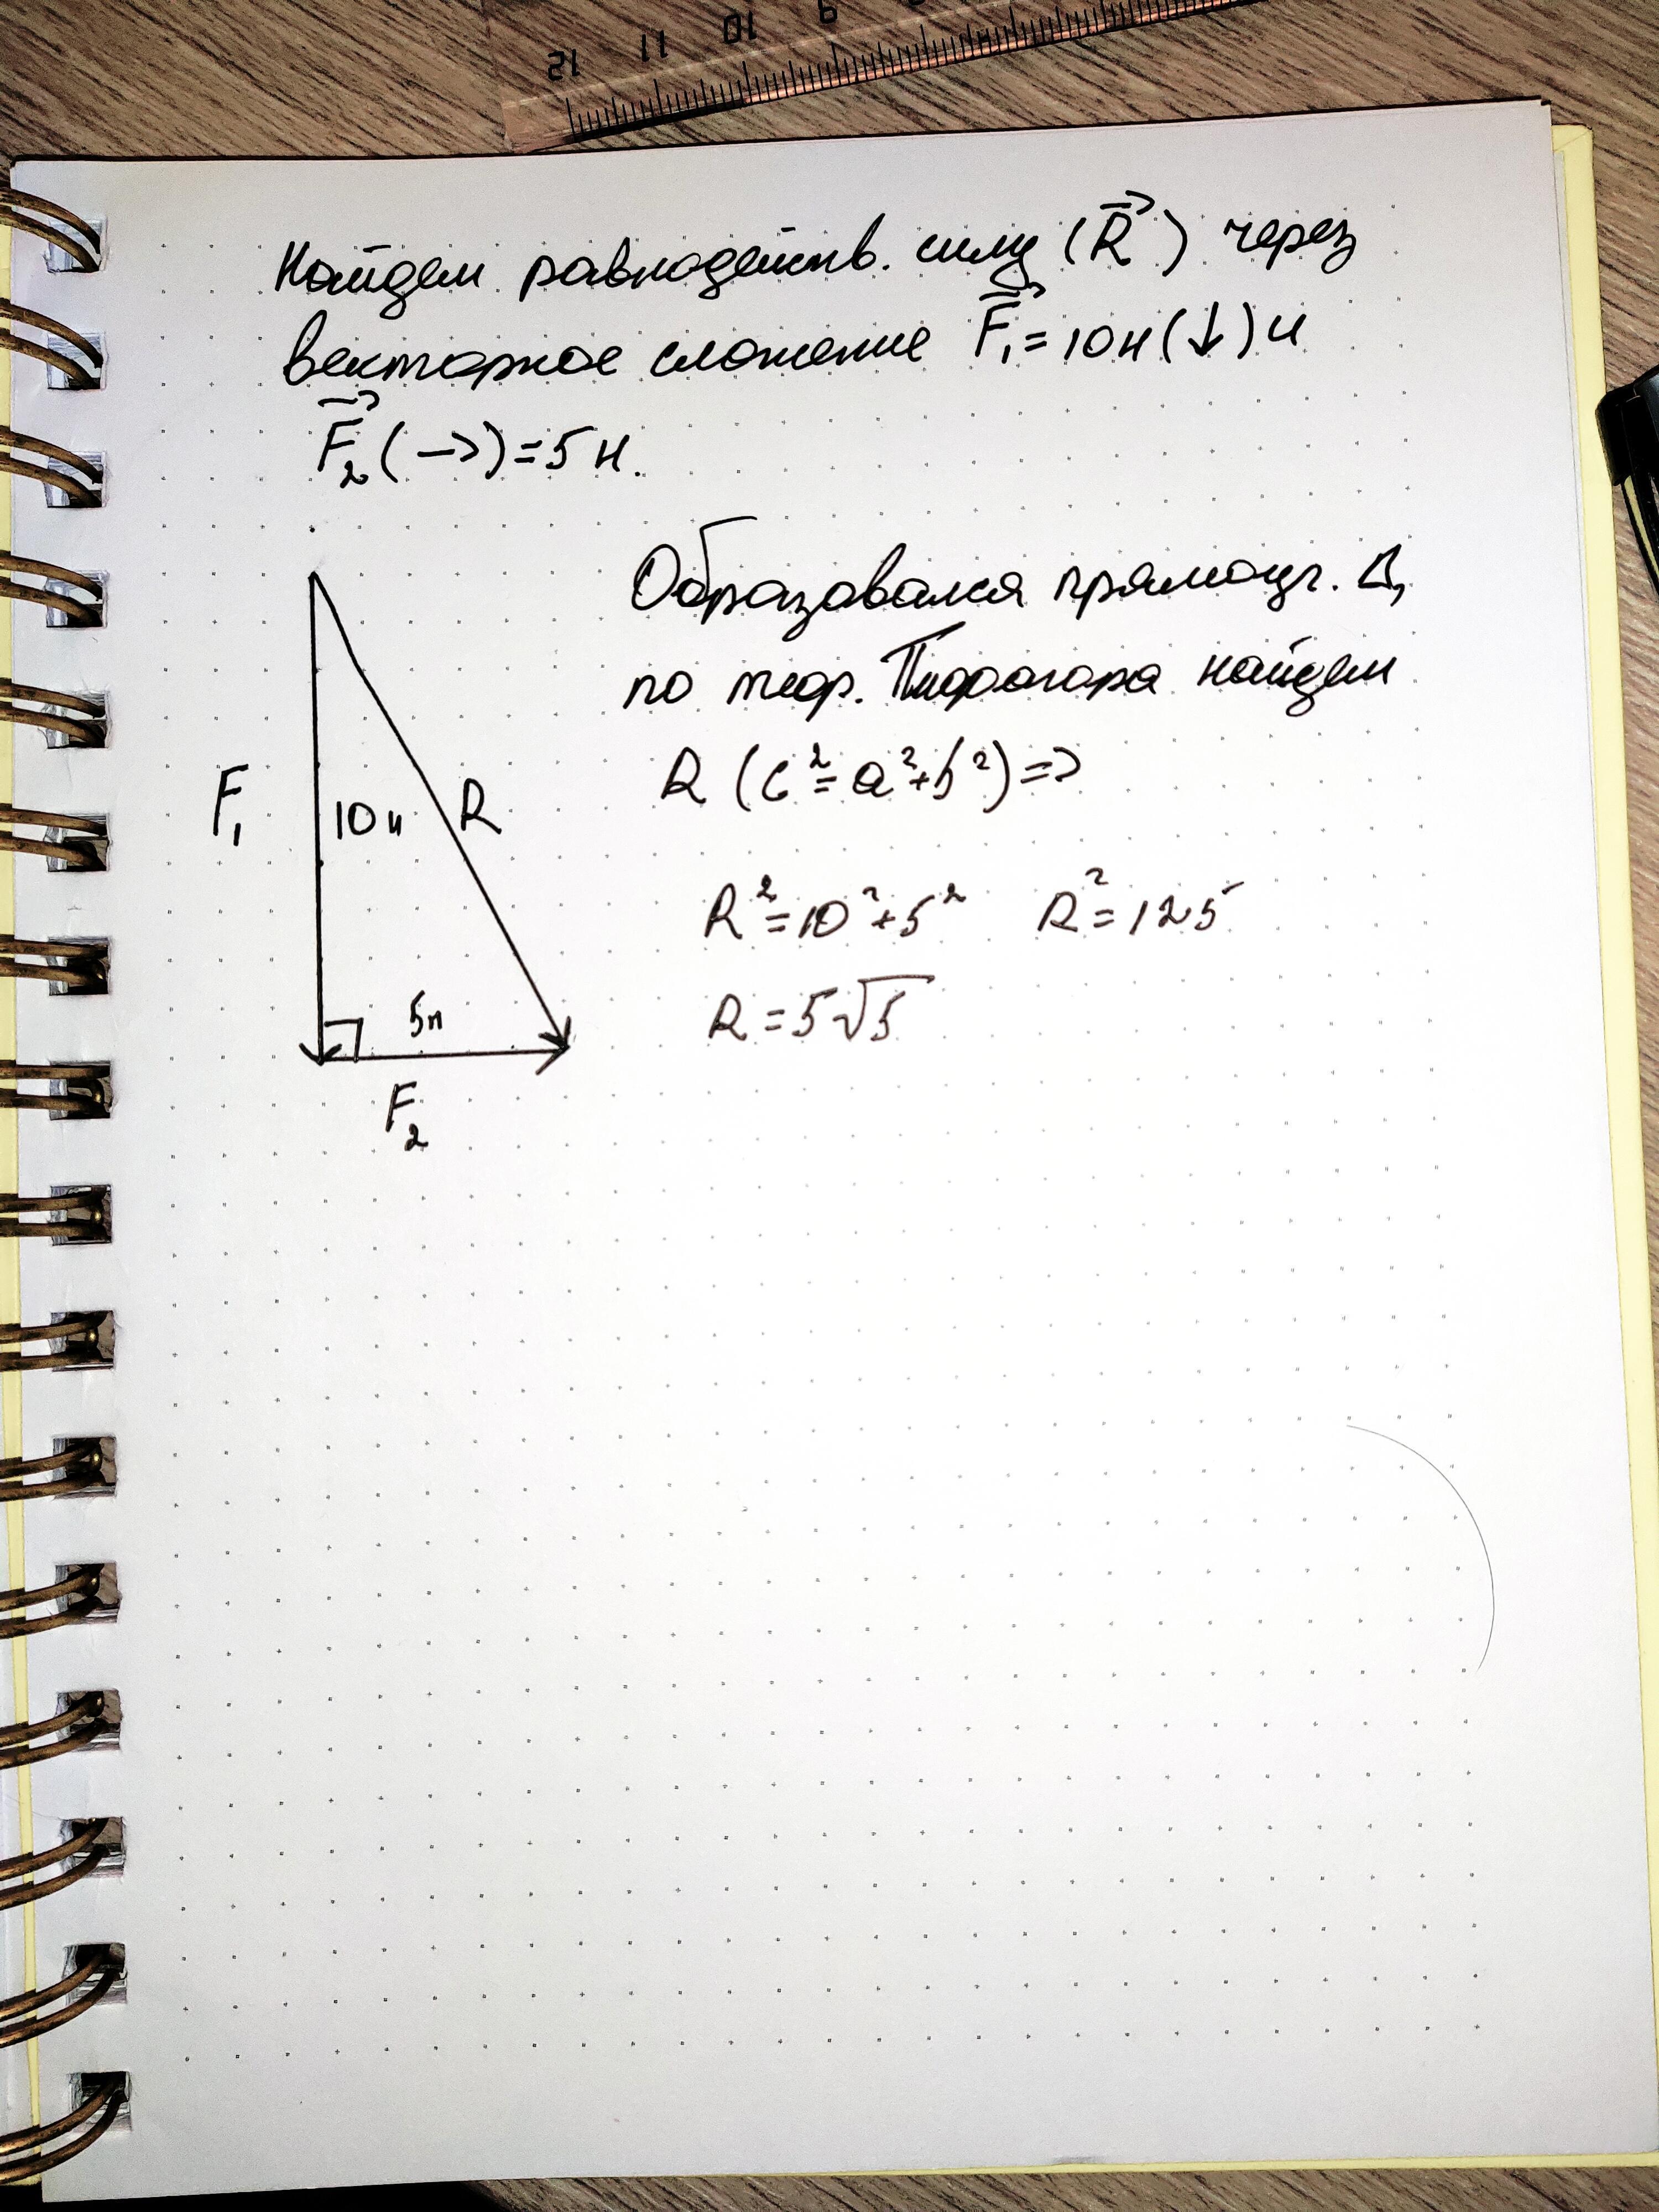 12 11 10 9
Найдем равнодейств. силу (R⃗) через
векторное сложение F⃗₁=10н(↓)и
F⃗₂(->)=5н.
Образовался прямоуг. Δ,
по теор. Пифагора найдем
R (c²=a²+b²)=>
F₁ 10н R
R²=10²+5² R²=125
5н R=5√5
F₂